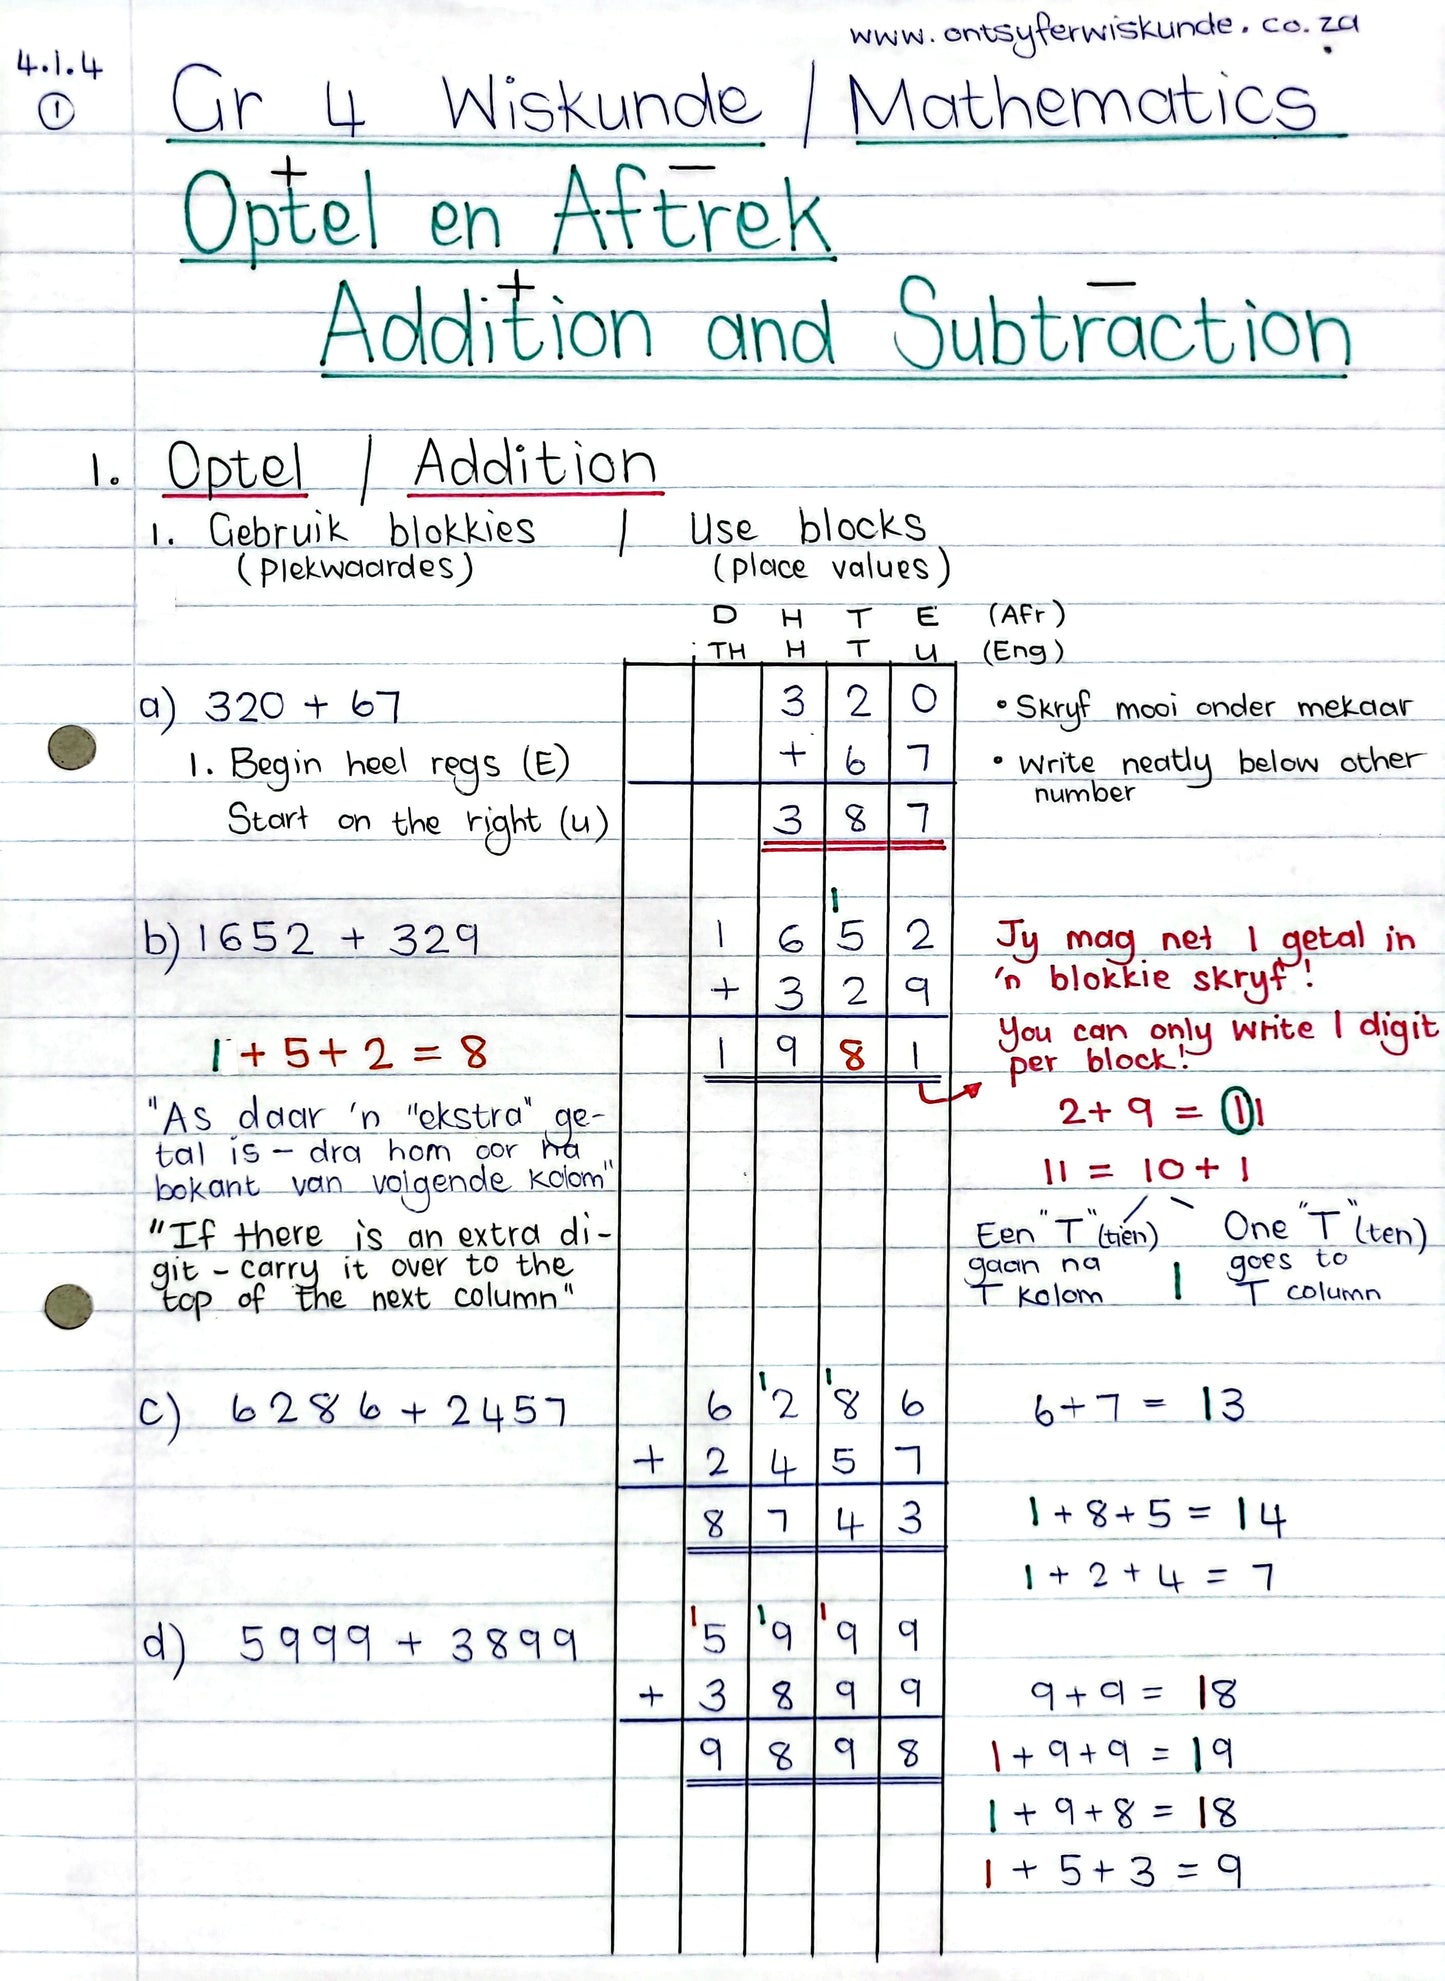 www.ontsyferwiskunde.co.za
4.1.4
①
Gr 4 Wiskunde / Mathematics
+ −
Optel en Aftrek
+ −
Addition and Subtraction
1. Optel / Addition
1. Gebruik blokkies / Use blocks
(plekwaardes) (place values)
D H T E (Afr)
TH H T U (Eng)
a) 320 + 67
3 2 0
• Skryf mooi onder mekaar
1. Begin heel regs (E)
+ 6 7
• Write neatly below other
number
Start on the right (U)
3 8 7
1
b) 1652 + 329
1 6 5 2
+ 3 2 9
1 9 8 1
Jy mag net 1 getal in
'n blokkie skryf!
You can only write 1 digit
per block!
1 + 5 + 2 = 8
2 + 9 = 11
11 = 10 + 1
"As daar 'n "ekstra" ge-
tal is – dra hom oor na
bokant van volgende kolom"
"If there is an extra di-
git – carry it over to the
top of the next column"
Een "T" (tien)
gaan na
T kolom
|
One "T" (ten)
goes to
T column
1 1
c) 6286 + 2457
6 2 8 6
6 + 7 = 13
+ 2 4 5 7
8 7 4 3
1 + 8 + 5 = 14
1 + 2 + 4 = 7
1 1 1
d) 5999 + 3899
5 9 9 9
+ 3 8 9 9
9 + 9 = 18
9 8 9 8
1 + 9 + 9 = 19
1 + 9 + 8 = 18
1 + 5 + 3 = 9